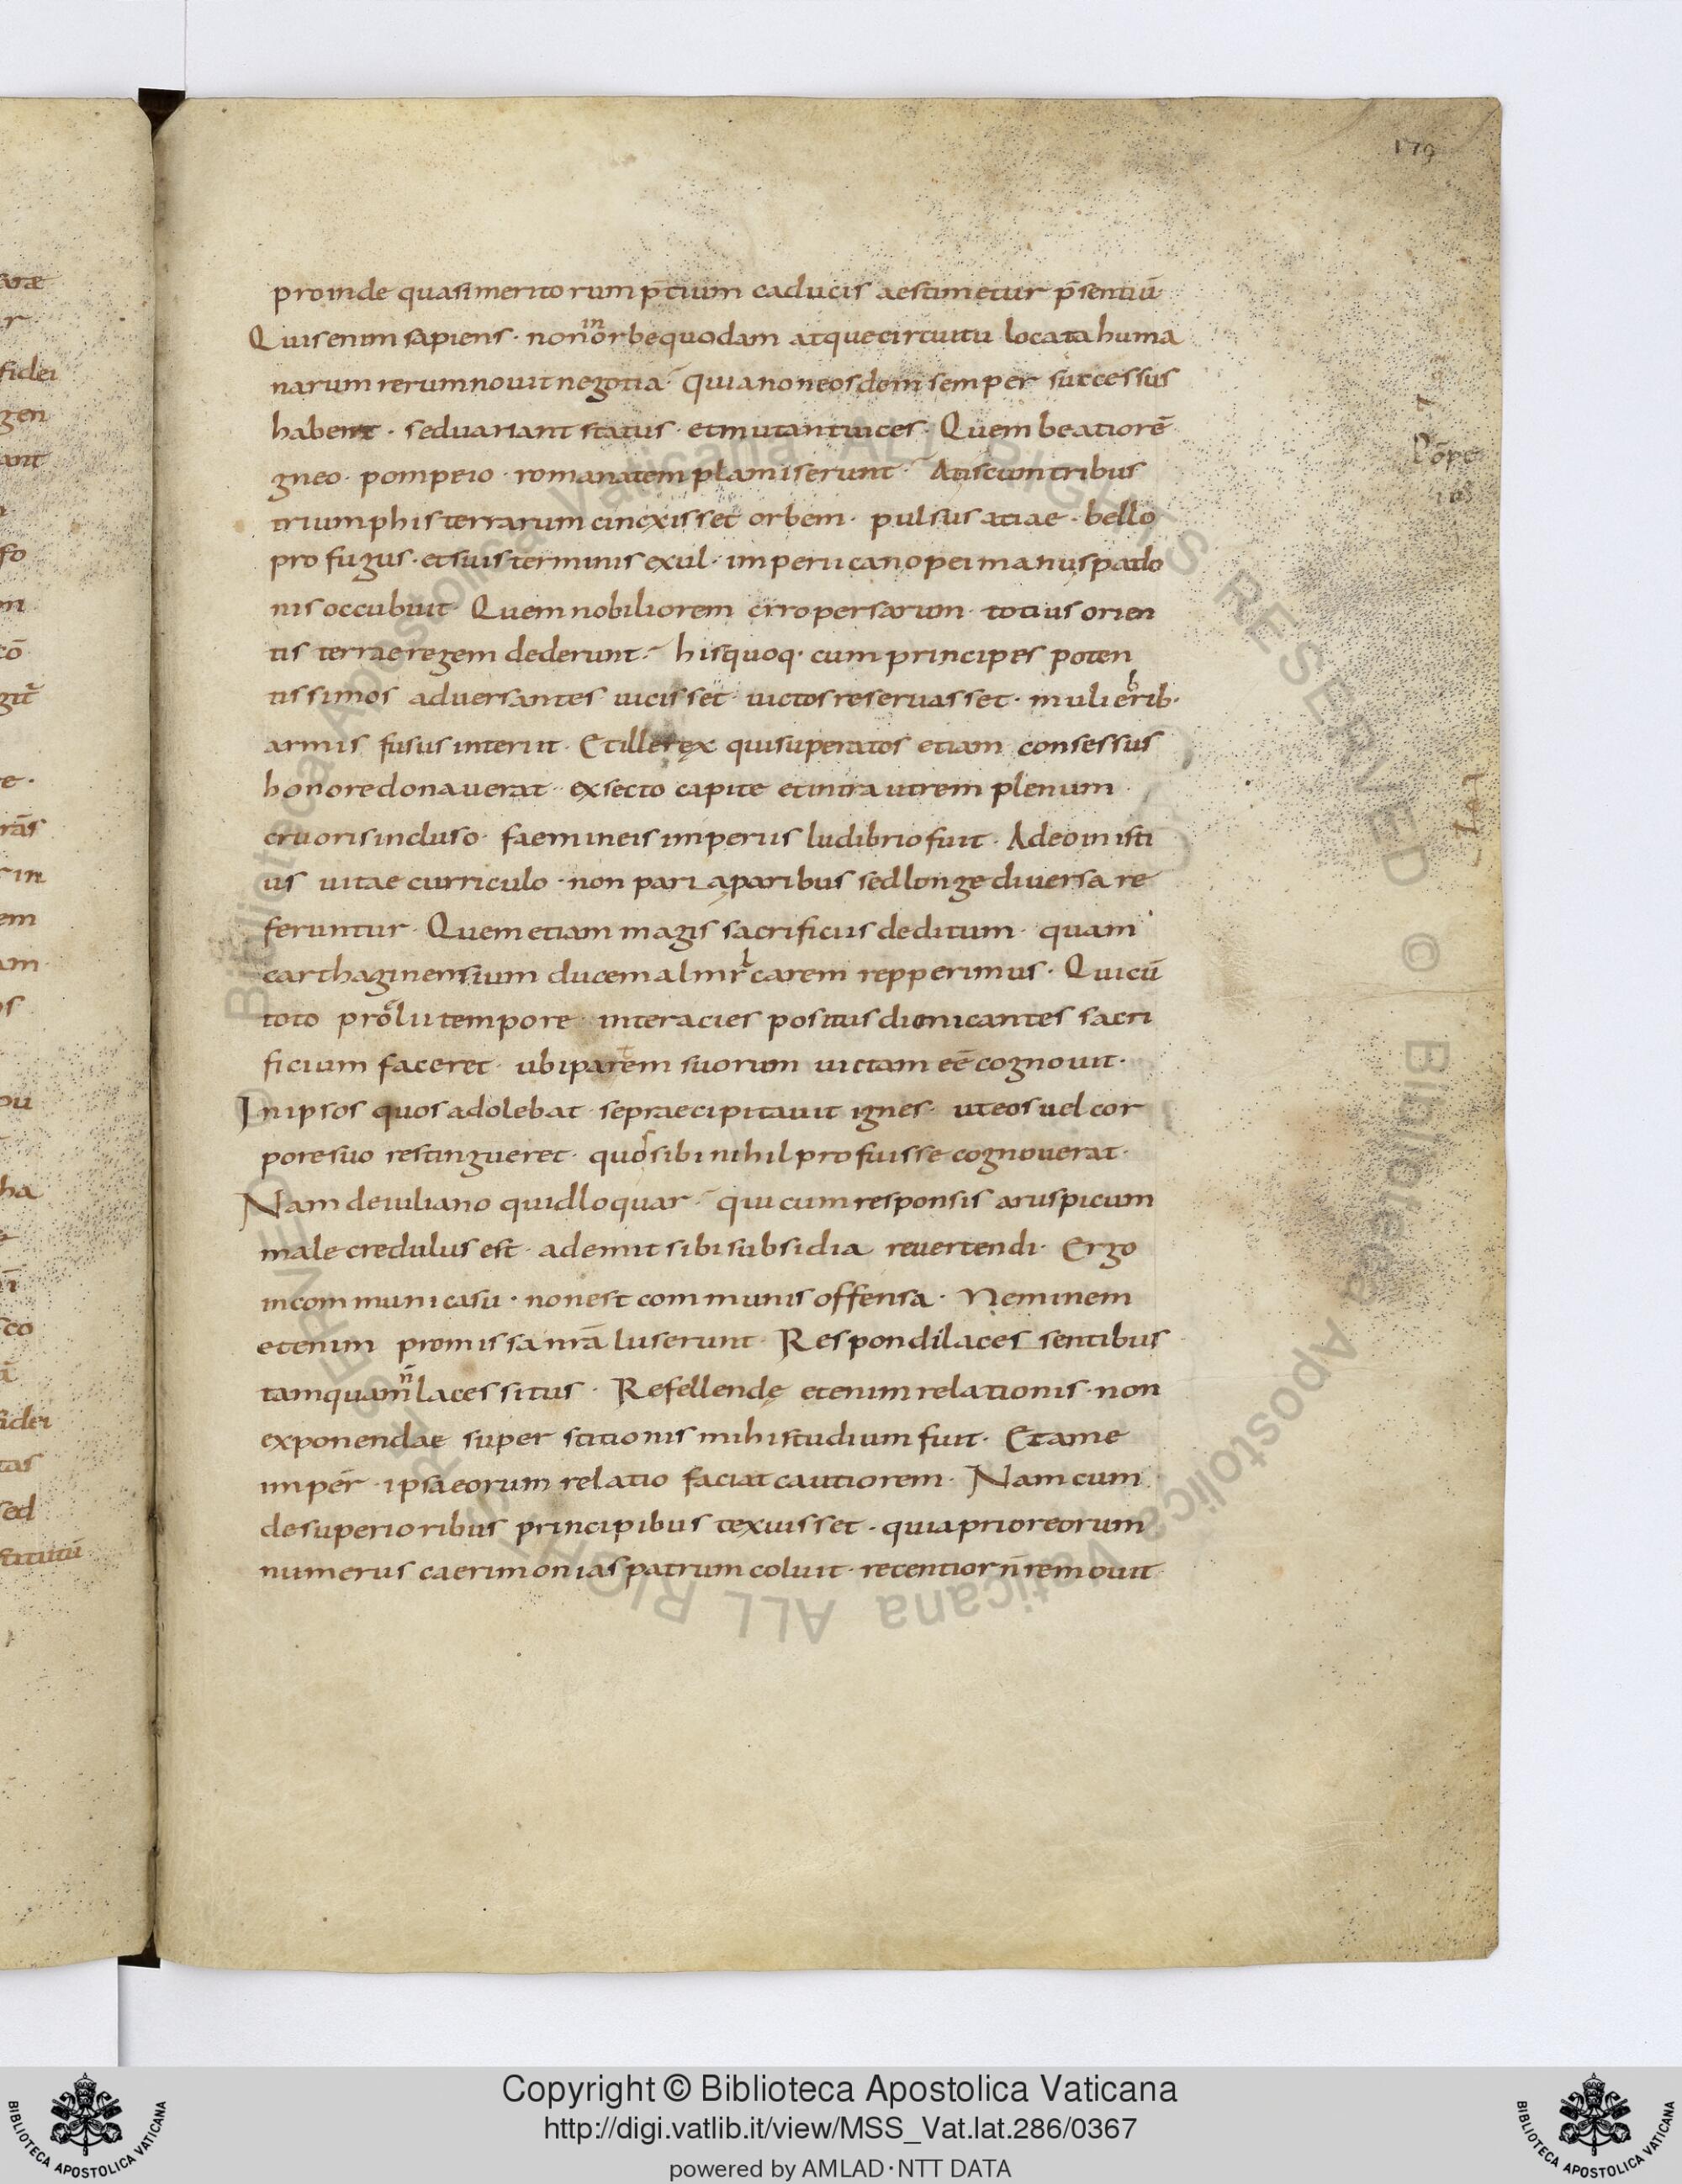 179
proinde quasi meritorum p̄tium caducis aestimetur p̄sentiū
Quis enim sapiens · non in orbe quodam atque circuitu locata huma
narum rerum novit negotia · Qui a non eosdem semper successus
habent · sed variant status · et mutant vices · Quem beatiorē
gneo · pompeio · romana templa miserunt · At is cum tribus
triumphis terrarum cinexisset orbem · pulsus atiae · bello
profugus · et suis terminis exul · imperii canopei manu spado
nis occubuit · Quem nobiliorem cirro persarum · totius orien
tis terrae regem dederunt · his quoq· cum principes poten
tissimos adversantes vicisset · victos reservasset · mulierib·
armis fusus interiit · Et ille rex qui superatos etiam consessus
honore donaverat · exsecto capite et intra utrem plenum
cruoris incluso · faemineis imperiis ludibrio fuit · Adeo in isti
us vitae curriculo · non paria paribus sed longe diversa re
feruntur · Quem etiam magis sacrificiis deditum · quam
carthaginensium ducem almilcarem repperimus · Qui cū
toto proelii tempore · inter acies positus dimicantes sacri
ficium faceret · ubi partem suorum victam eē cognovit ·
In ipsos quos adolebat · se praecipitavit ignes · ut eos vel cor
pore suo restingueret · quos sibi nihil profuisse cognoverat ·
Nam de iuliano quid loquar · qui cum responsis aruspicum
male credulus est · ademit sibi subsidia revertendi · Ergo
in communi casu · non est communis offensa · Neminem
etenim promissa nr̄a luserunt · Respondi lacessentibus
tamquam ñ lacessitus · Refellendę etenim relationis · non
exponendae superstitionis mihi studium fuit · Et a me
imper̄ · ipsa eorum relatio faciat cautiorem · Nam cum
de superioribus principibus texuisset · quia prior eorum
numerus caerimonias patrum coluit · recentior n̄ removit
Pōpe
ius
Copyright © Biblioteca Apostolica Vaticana
http://digi.vatlib.it/view/MSS_Vat.lat.286/0367
powered by AMLAD·NTT DATA
BIBLIOTECA APOSTOLICA VATICANA
BIBLIOTECA APOSTOLICA VATICANA